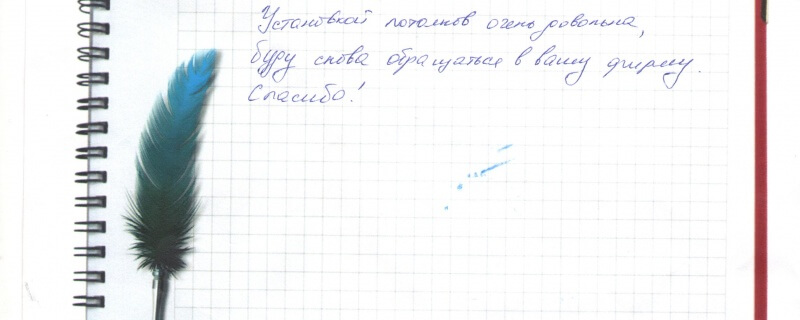 Установкой потолков очень довольна,
буду снова обращаться в вашу фирму.
Спасибо!